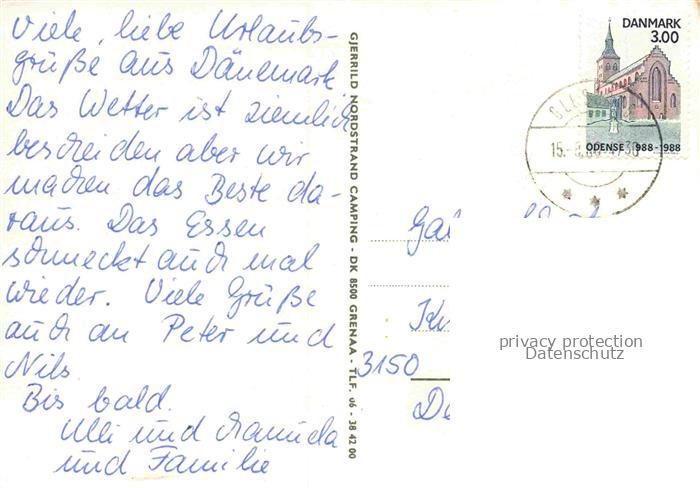 Viele, liebe Urlaubs-
grüße aus Dänemark
Das Wetter ist ziemlich
bescheiden aber wir
machen das Beste da-
raus. Das Essen
schmeckt auch mal
wieder. Viele Grüße
auch an Peter und
Nils.
Bis bald.
Ulli und
und Familie
GJERRILD NORDSTRAND CAMPING - DK 8500 GRENAA - TLF. 06 - 38 42 00
DANMARK
3.00
ODENSE 988-1988
15.
3150
privacy protection
Datenschutz